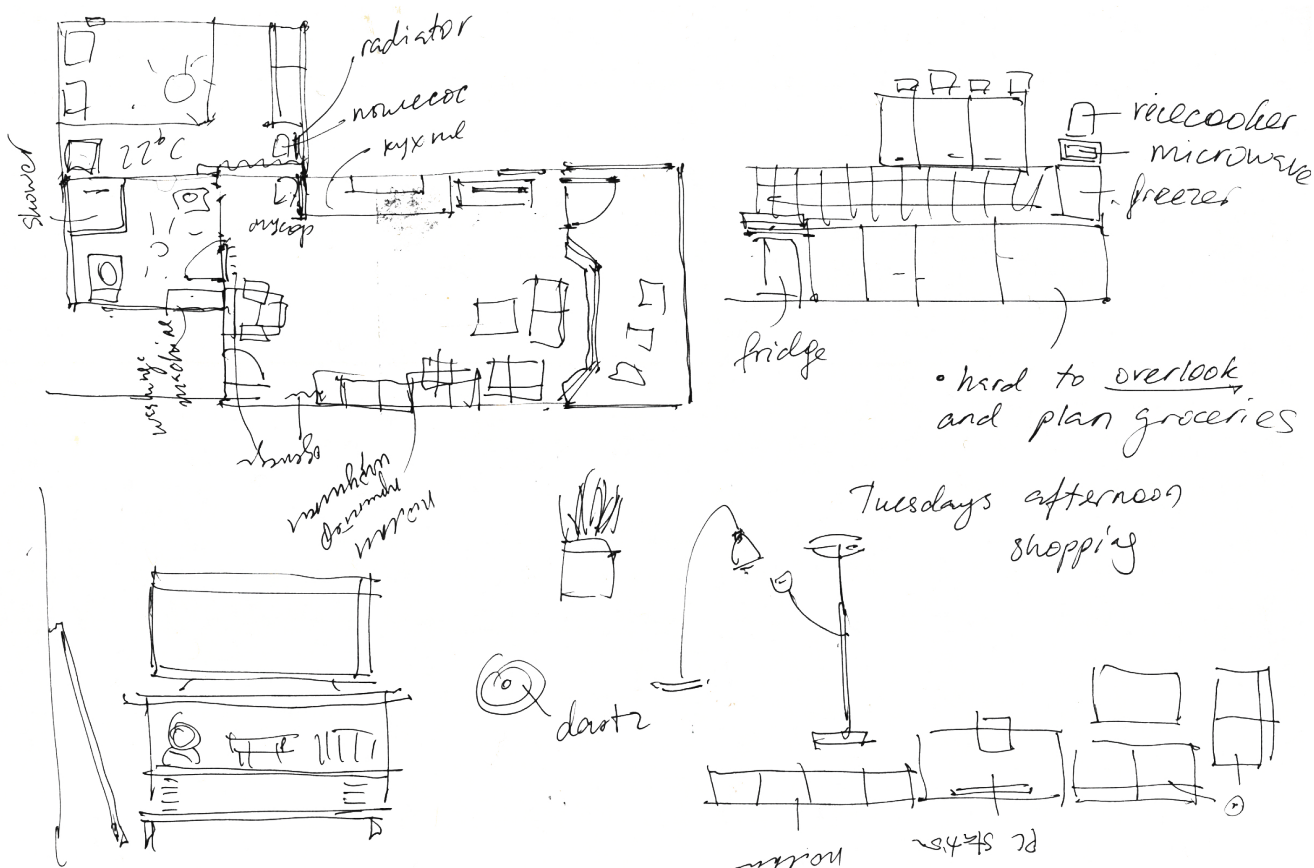 radiator
помесос
кухня
22°C
shower
washing machine
ricecooker
microwave
freezer
fridge
• hard to overlook
and plan groceries
Tuesdays afternoon
shopping
одежда
полки
darts
PC station
полки